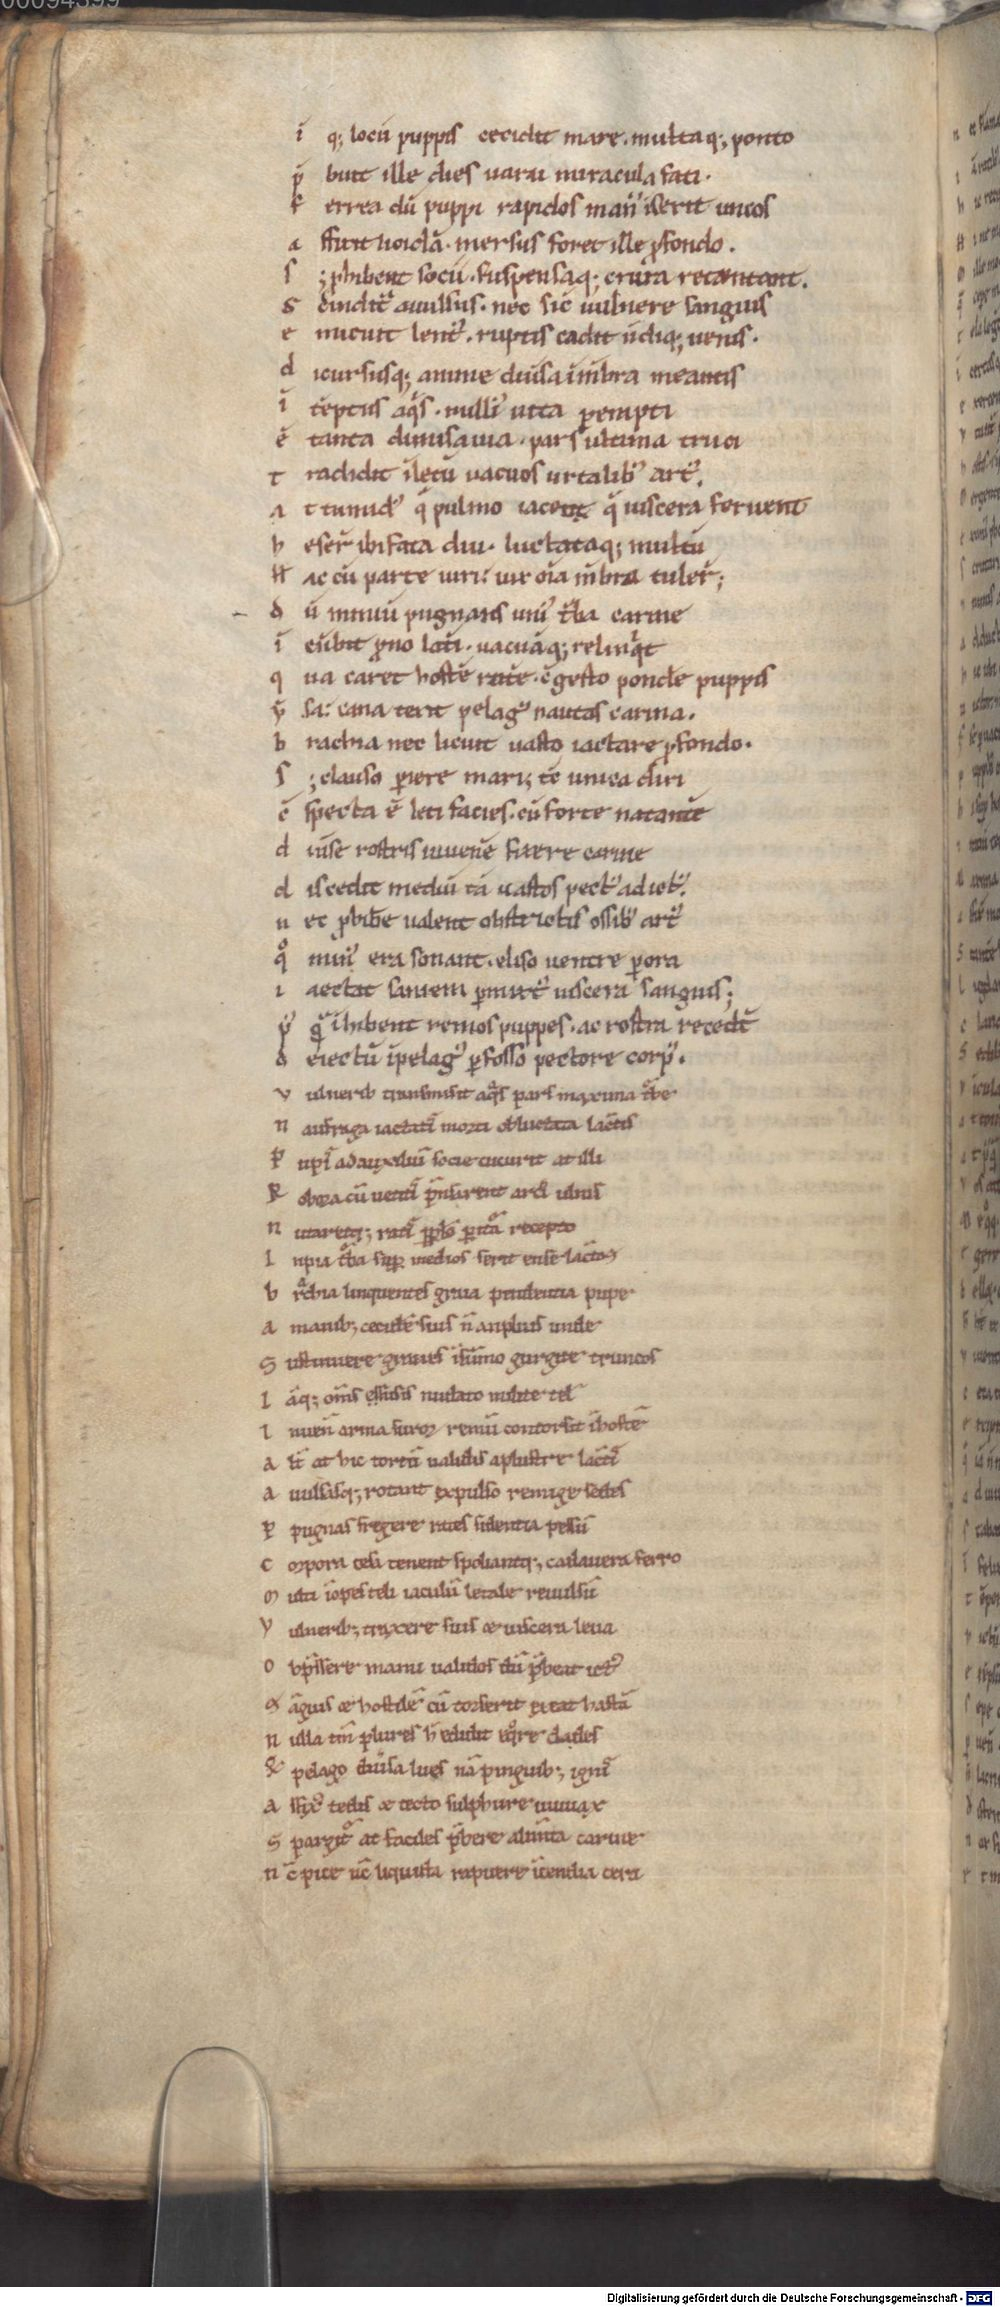 00094399
ī q; locū puppis cecidit mare. multaq; ponto
p̄ buit ille dies uarii miracula fati.
f errea dū puppi rapidos man᷒ īserit uncos
a ffixit lioiclā. mersus foret ille ꝓfondo.
s ; ꝓhibent socii. suspensaq; crura retentant.
S cindit᷑ auulsus. nec sic uulnere sanguis
e micuit lent᷒. ruptis cadit ūdiq; uenis.
d icursusq; anime diuisa ī mbra meantis
ī t̄eptus aq̄s. nulli᷒ uita pempti
ē tanta dimisa uia. pars ultima trunci
T radidit ī letū uacuos uitalib᷒ art᷒.
a t tumid᷒ q̄ pulmo iacent q̄ uiscera feruent
h eser̄ ibi fata diu. luctataq; multū
H ac cū parte uiri: uix oīa mbra tuler̄;
d ū nimiū pugnans uni᷒ t᷑ba carine
ī cūbit p̄no lati. uacuāq; relinq̄t
q ua caret hoste rate. ɔ̄gesto pondere puppis
v̄ sa: caua texit pelag᷒ nautas carina.
b rachia nec licuit uasto iactare ꝓfondo.
S ; clauso piere mari; tē unica diri
ɔ̄ specta ē leti facies. cū forte natantē
d iuse rostris iuuenē fixere carine
d iscedit mediū tā uastos pect᷒ ad ict᷒.
n ec ꝓhibē ualent obtritis ossib᷒ art᷒
qͦ min᷒ era sonant. eliso uentre pora
i aectat saniem pmixt᷒ uiscera sanguis;
p᷒ q̄ īhibent remos puppes. ac rostra recedt̄
d eiectū ī pelag᷒ pfosso pectore corp᷒.
v ulnerib transmisit aq̄s pars maxima t᷑be
n aufraga iactati morti obluctata lac̄tis
P upī ad auxiliū socie cucurit at illi
R obora cū uetiti p̄nsarent arci᷒ ulnis
n utaretq; ratis pplo pit᷑a recepto
I npia t᷑ba sup medios ferit ense lac̄tos
b rachia linquentes graia pendentia pupe
a manib; cecidē suis n̄ anplius unde
S ustinuere graues ī sūmo gurgite truncos
I āq; om̄s effusis nudato milite tel᷒
I nuen̄ arma furor remū contorsit ī hostē
a lt̄ at hic tortū ualidis aplustre lac̄tis
a uulsasq; rotant expulso remige sedes
P pugnas fregere rates sidentia pessū
C orpora cesa tenent spoliantq; cadauera ferro
m ulti īopes teli iaculū letale reuulsū
V ulnerib; traxere suis & uiscera leua
O bp̄ssere manu ualidos dū p̄beat ict᷒
S āguis & hostilē cū torserit exeat hastā
n ulla tm̄ plures h̄ edidit eq̄re clades
& pelago diuisa lues nā pinguib; ignis
a ffix᷒ tedis & tecto sulphure uiuax
S pargit᷑ at faciles p̄bere alimta carine
n c̄ pice n̄c liquida rapuere icendia cera
Digitalisierung gefördert durch die Deutsche Forschungsgemeinschaft - DFG